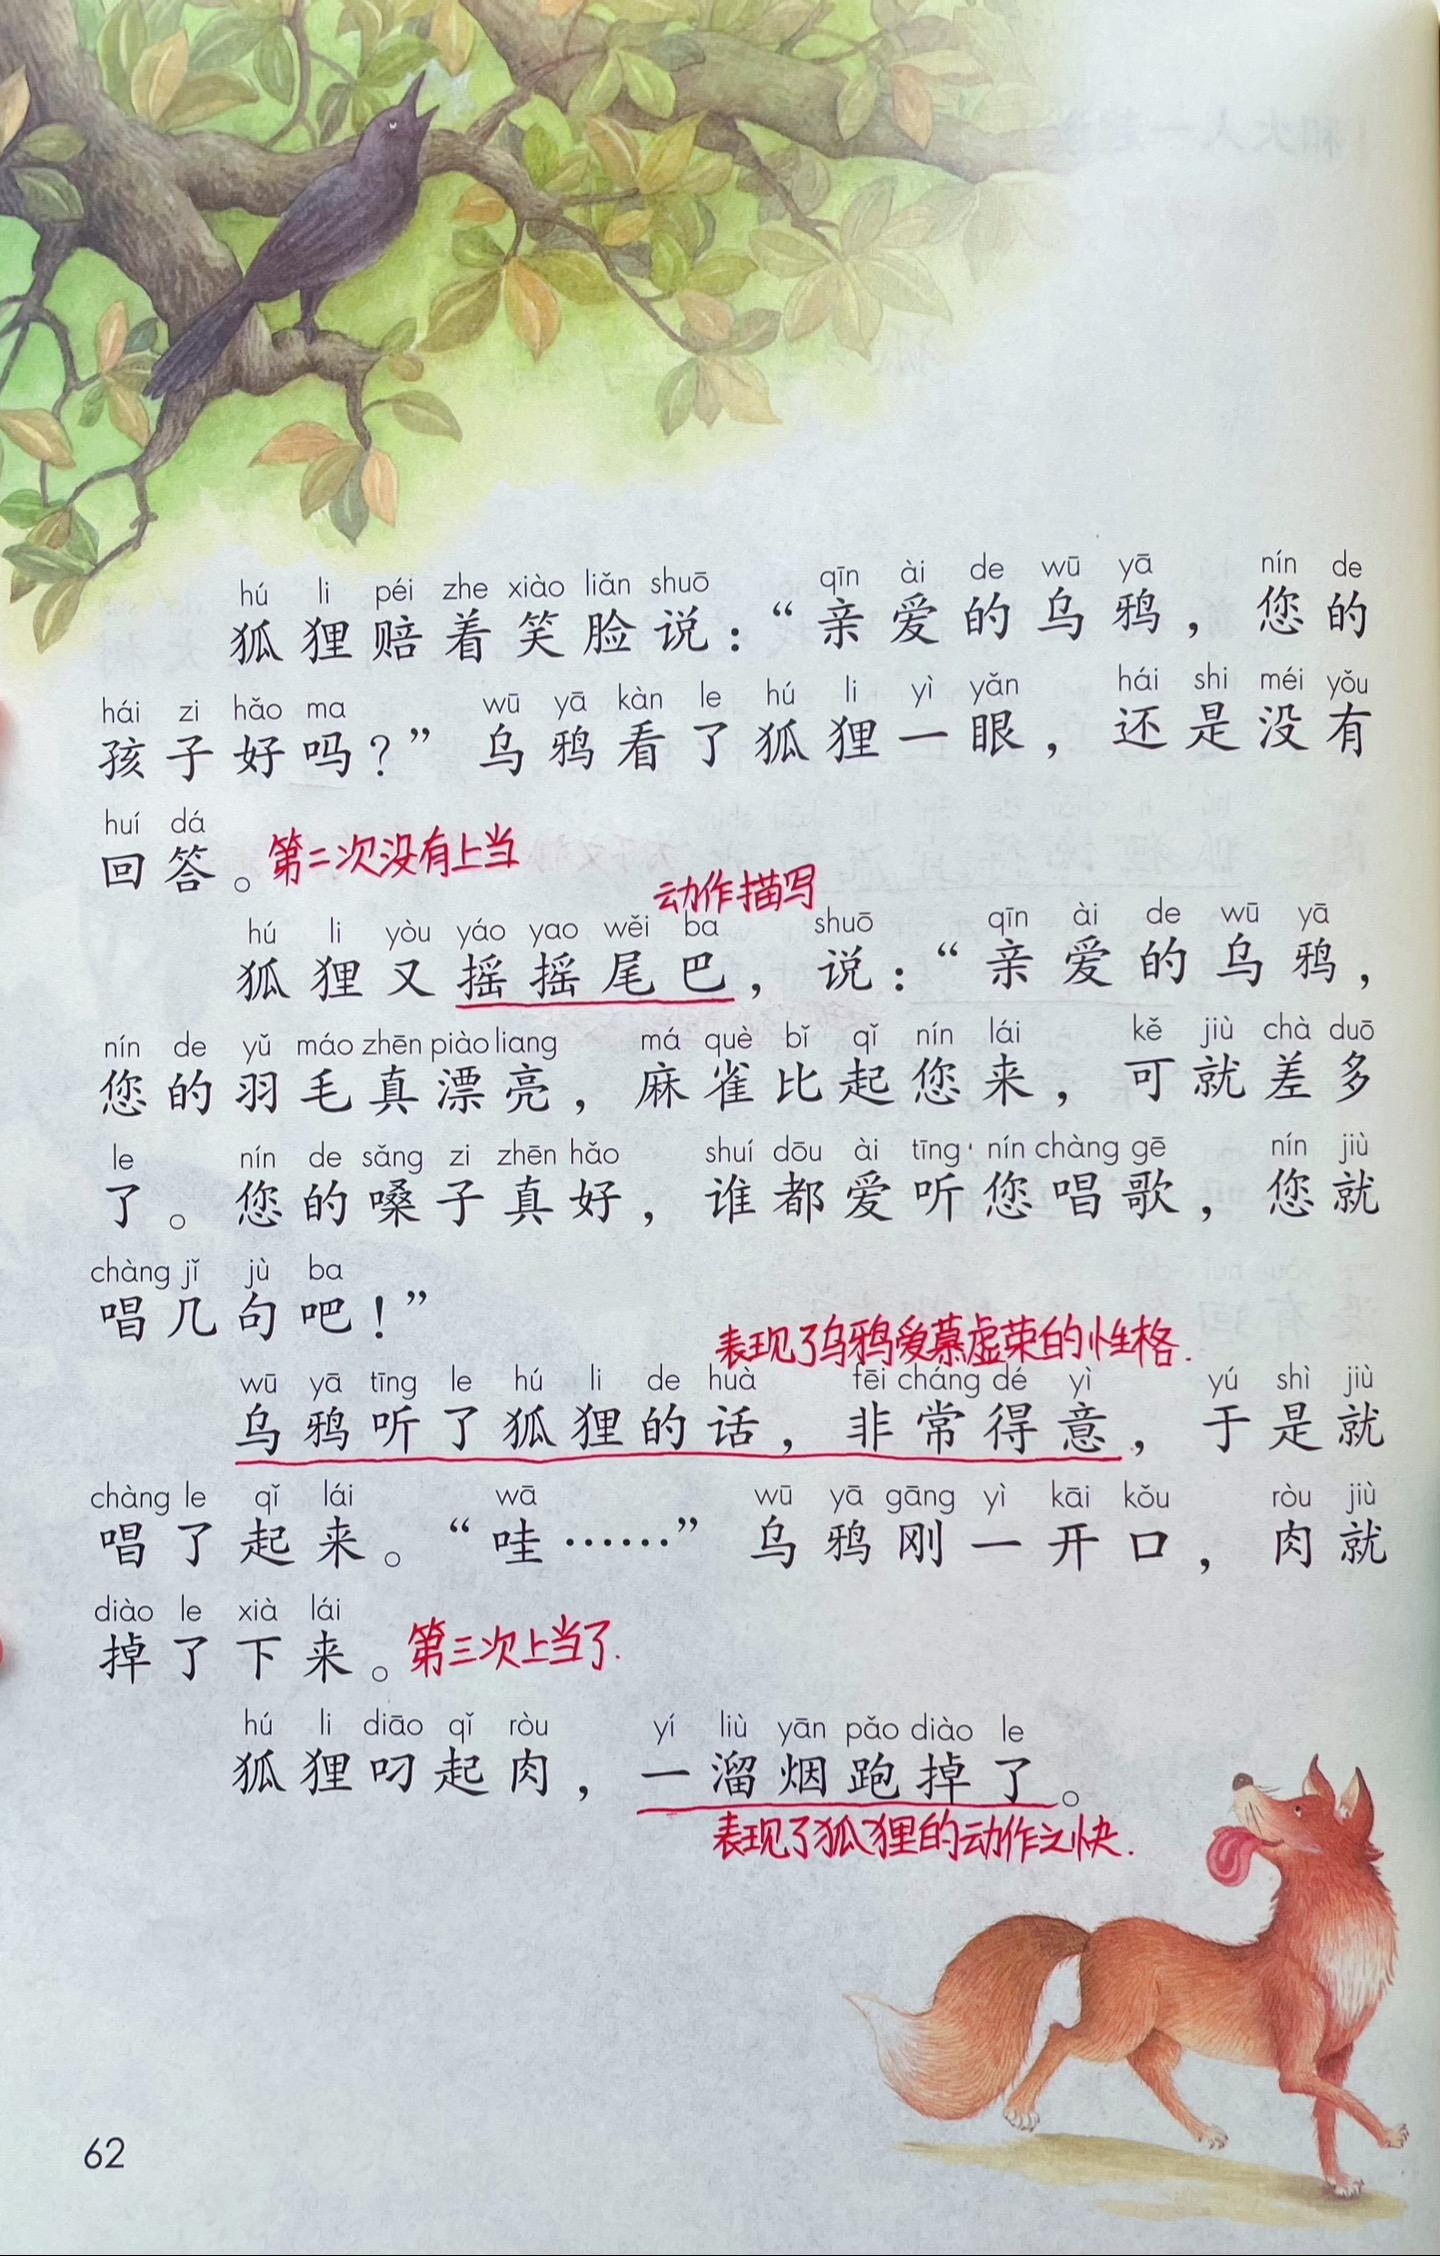 hú li péi zhe xiào liǎn shuō qīn ài de wū yā nín de
狐狸赔着笑脸说：“亲爱的乌鸦，您的
hái zi hǎo ma wū yā kàn le hú li yì yǎn hái shi méi yǒu
孩子好吗？”乌鸦看了狐狸一眼，还是没有
huí dá
回答。第二次没有上当
动作描写
hú li yòu yáo yao wěi ba shuō qīn ài de wū yā
狐狸又摇摇尾巴，说：“亲爱的乌鸦，
nín de yǔ máo zhēn piào liang má què bǐ qǐ nín lái kě jiù chà duō
您的羽毛真漂亮，麻雀比起您来，可就差多
le nín de sǎng zi zhēn hǎo shuí dōu ài tīng nín chàng gē nín jiù
了。您的嗓子真好，谁都爱听您唱歌，您就
chàng jǐ jù ba
唱几句吧！”
表现了乌鸦爱慕虚荣的性格.
wū yā tīng le hú li de huà fēi cháng dé yì yú shì jiù
乌鸦听了狐狸的话，非常得意，于是就
chàng le qǐ lái wā wū yā gāng yì kāi kǒu ròu jiù
唱了起来。“哇……”乌鸦刚一开口，肉就
diào le xià lái
掉了下来。第三次上当了.
hú li diāo qǐ ròu yí liù yān pǎo diào le
狐狸叼起肉，一溜烟跑掉了。
表现了狐狸的动作之快.
62